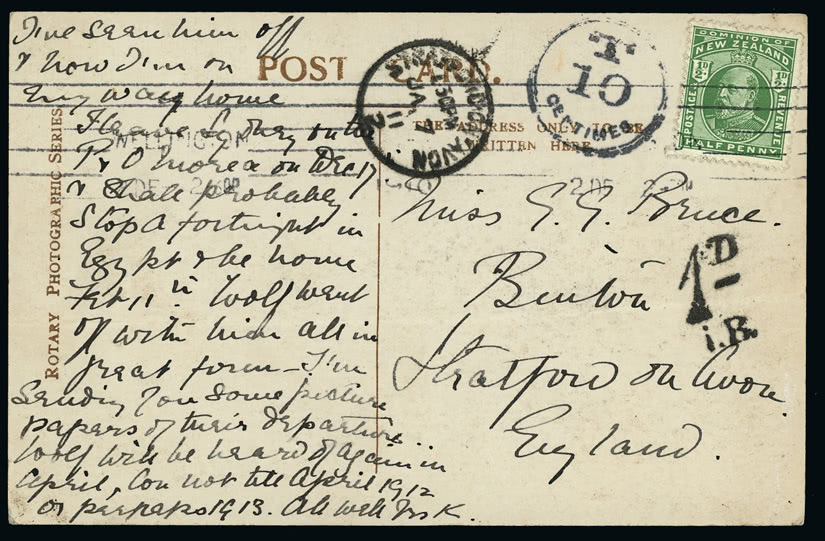 I've seen him off
& now I'm on
my way home
I leave Sydney on the
P & O Morea on Dec 17
& shall probably
stop a fortnight in
Egypt & be home
Feb 11th Wolf went
off with him all in
great form - I'm
sending you some picture
papers of their departure
Wolf will be heard of again in
April, Con not till April 1912
or perhaps 1913. All well Yrs K.
ROTARY PHOTOGRAPHIC SERIES
POST CARD.
THE ADDRESS ONLY TO BE
WRITTEN HERE
WELLINGTON
AVON
JA 11
T
10
CENTIMES
DOMINION OF
NEW ZEALAND
½D ½D
POSTAGE & REVENUE
HALF PENNY
Miss E. E. Bruce.
Binton
Stratford on Avon.
England.
1D
I.R.